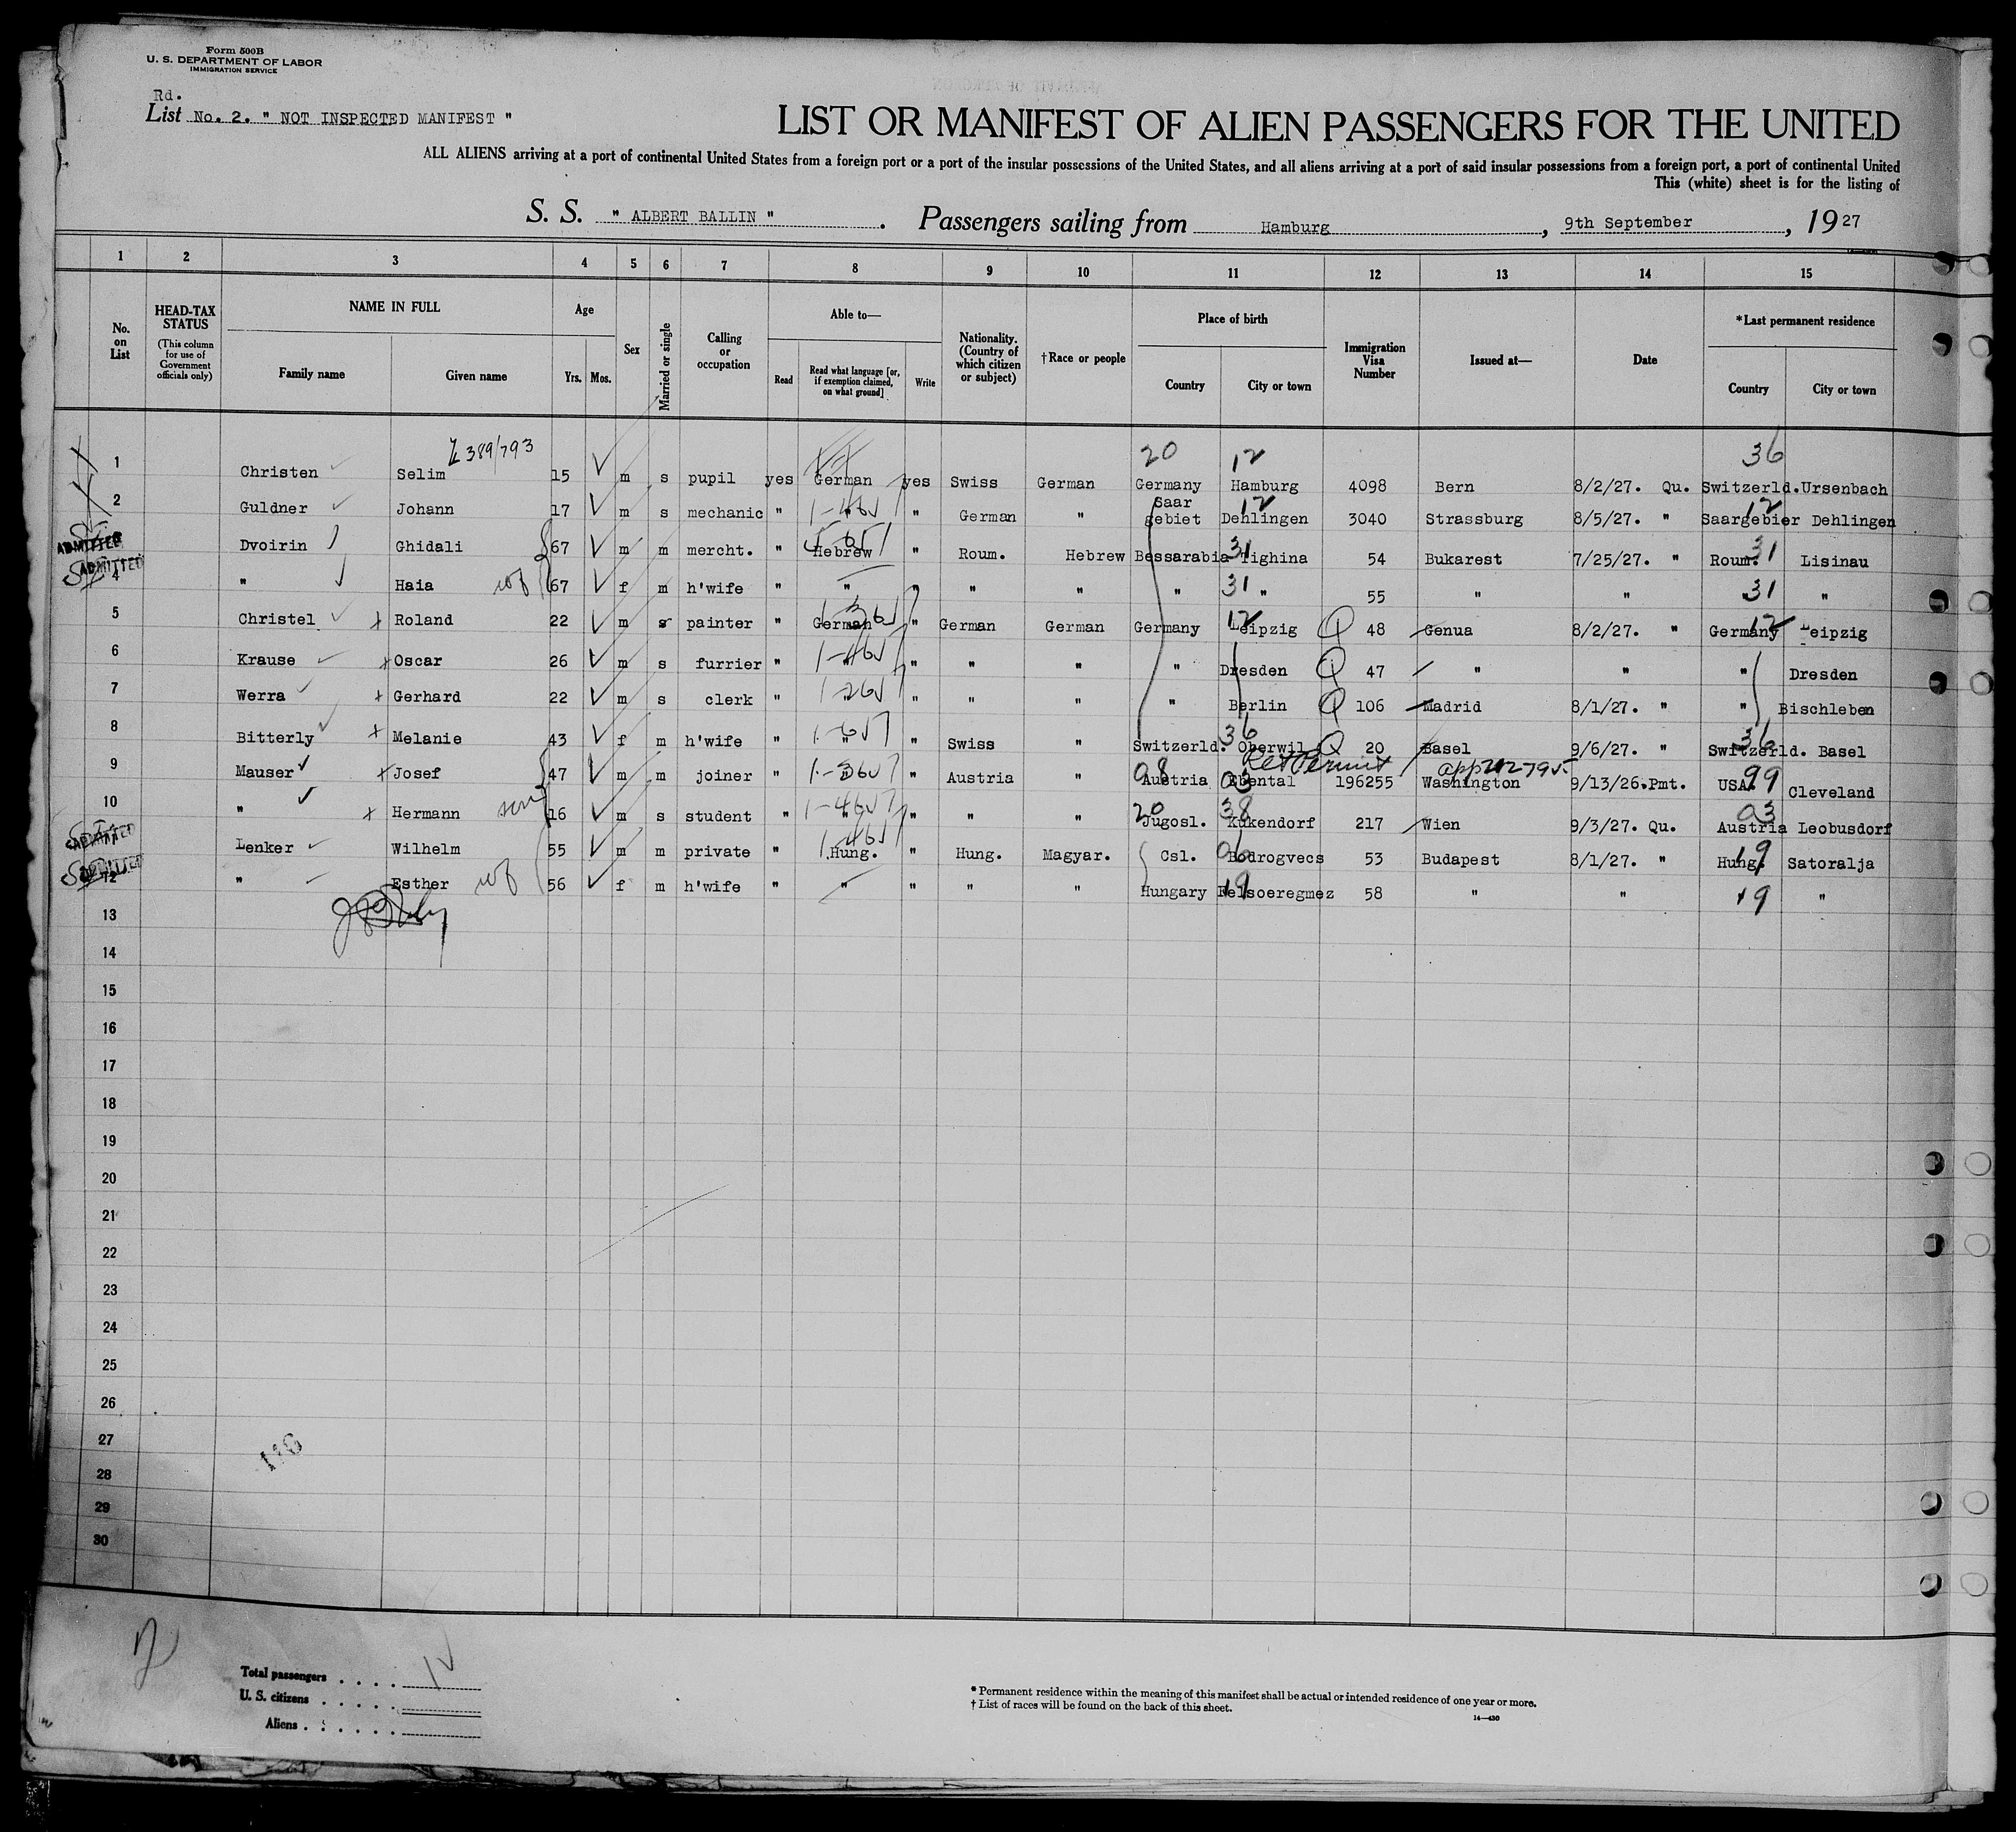 Form 500B
U. S. DEPARTMENT OF LABOR
IMMIGRATION SERVICE
Rd.
List No. 2. " NOT INSPECTED MANIFEST "
LIST OR MANIFEST OF ALIEN PASSENGERS FOR THE UNITED
ALL ALIENS arriving at a port of continental United States from a foreign port or a port of the insular possessions of the United States, and all aliens arriving at a port of said insular possessions from a foreign port, a port of continental United
This (white) sheet is for the listing of
S. S. " ALBERT BALLIN ". Passengers sailing from Hamburg, 9th September, 1927
1 2 3 4 5 6 7 8 9 10 11 12 13 14 15
No. on List
HEAD-TAX STATUS (This column for use of Government officials only)
NAME IN FULL
Family name Given name
Age
Yrs. Mos.
Sex
Married or single
Calling or occupation
Able to—
Read Read what language [or, if exemption claimed, on what ground] Write
Nationality. (Country of which citizen or subject)
†Race or people
Place of birth
Country City or town
Immigration Visa Number
Issued at—
Date
*Last permanent residence
Country City or town
L 389/793 20 12 36
1 Christen Selim 15 m s pupil yes German yes Swiss German Germany Hamburg 4098 Bern 8/2/27. Qu. Switzerld. Ursenbach
2 Guldner Johann 17 m s mechanic " " " German " Saar gebiet Dehlingen 12 3040 Strassburg 8/5/27. " Saargebier 12 Dehlingen
ADMITTED Dvoirin Ghidali 67 m m mercht. " Hebrew " Roum. Hebrew Bessarabia Tighina 31 54 Bukarest 7/25/27. " Roum. 31 Lisinau
ADMITTED 4 " Haia wf 67 f m h'wife " " " " " " " 31 55 " " 31 "
5 Christel x Roland 22 m s painter " German " German German Germany Leipzig 12 Q 48 Genua 8/2/27. " Germany 12 Leipzig
6 Krause x Oscar 26 m s furrier " " " " " " Dresden Q 47 " " " Dresden
7 Werra x Gerhard 22 m s clerk " " " " " " Berlin Q 106 Madrid 8/1/27. " " Bischleben
8 Bitterly x Melanie 43 f m h'wife " " " Swiss " Switzerld. Oberwil 36 Q 20 Basel 9/6/27. " Switzerld. 36 Basel
Ret Permit
9 Mauser x Josef 47 m m joiner " " " Austria " Austria 08 Ebental 03 196255 Washington 9/13/26. Pmt. USA. 99 Cleveland
10 " x Hermann son 16 m s student " " " " " Jugosl. 20 Kukendorf 38 217 Wien 9/3/27. Qu. Austria 03 Leobusdorf
ADMITTED Lenker Wilhelm 55 m m private " Hung. " Hung. Magyar. Csl. Bodrogvecs 06 53 Budapest 8/1/27. " Hung. 19 Satoralja
ADMITTED 12 " Esther wf 56 f m h'wife " " " " " Hungary Felsoeregmez 19 58 " " 19 "
13
14
15
16
17
18
19
20
21
22
23
24
25
26
27
28
29
30
Total passengers . . . . 12
U. S. citizens . . . . .
Aliens . . . . . .
* Permanent residence within the meaning of this manifest shall be actual or intended residence of one year or more.
† List of races will be found on the back of this sheet.
14—430